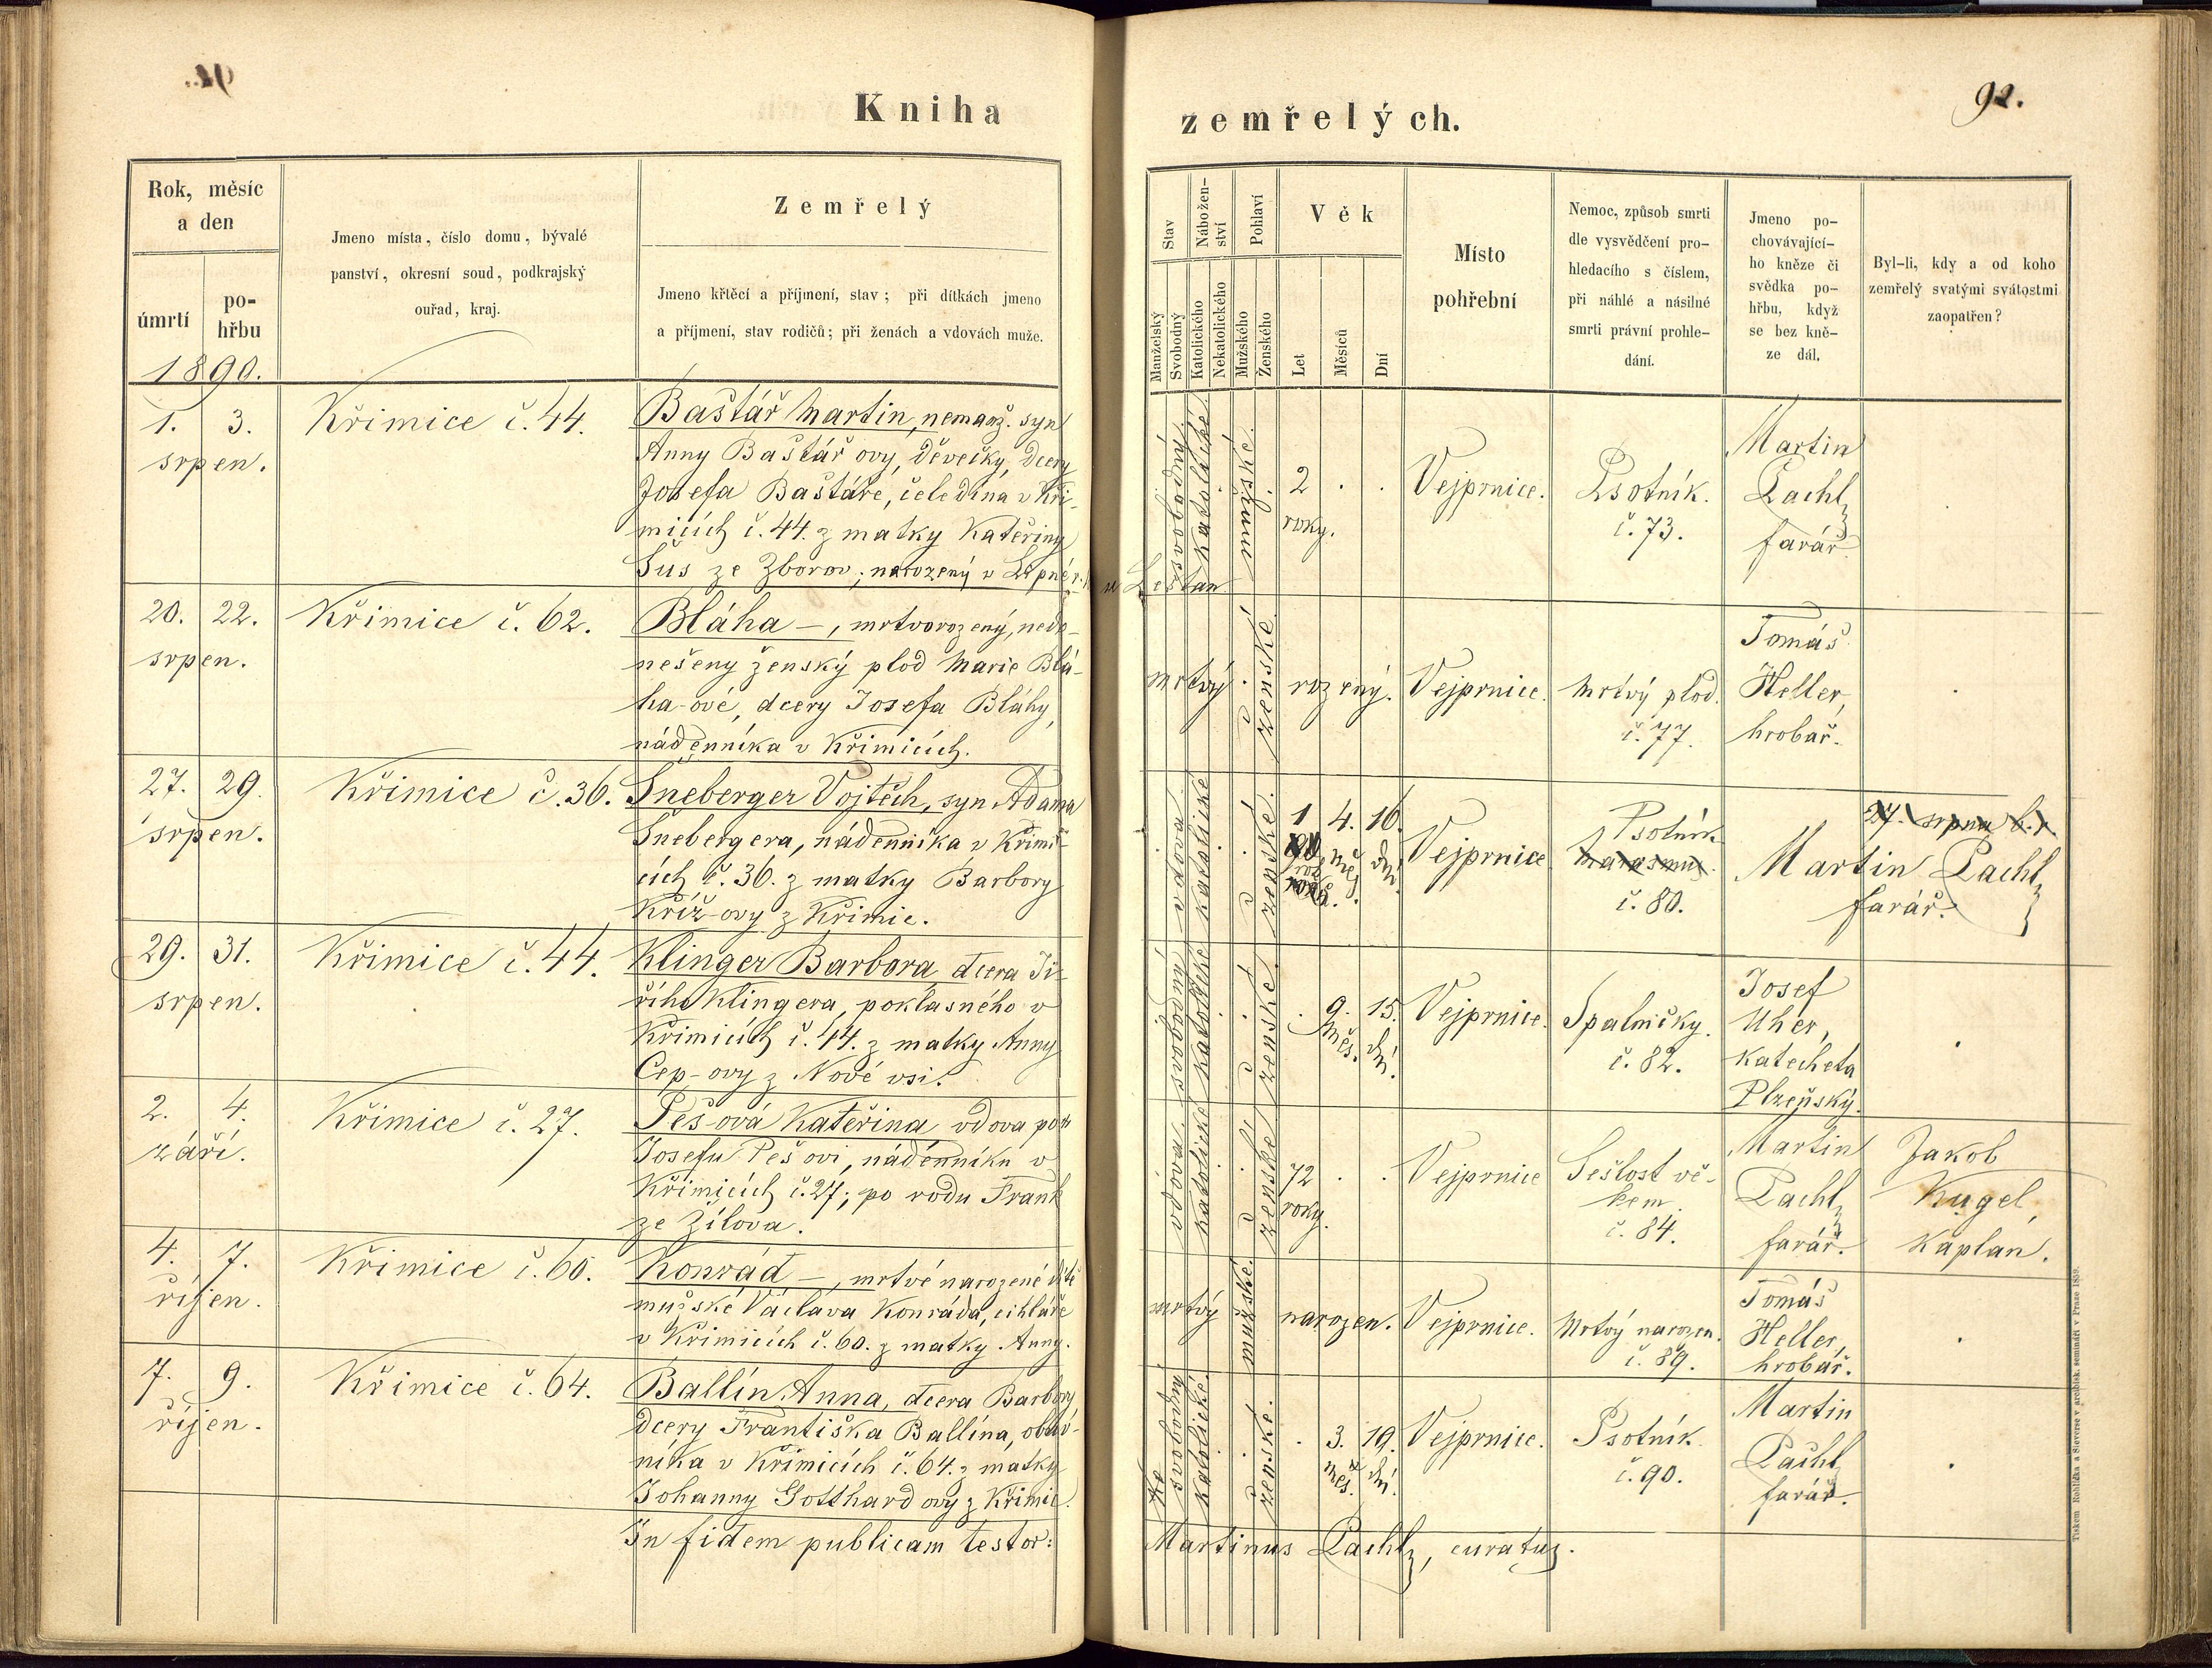 Kniha
zemřelých.
92.
Rok, měsíc
a den
úmrtí
po-
hřbu
Jmeno místa, číslo domu, bývalé
panství, okresní soud, podkrajský
ouřad, kraj.
Zemřelý
Jmeno křtěcí a příjmení, stav; při dítkách jmeno
a příjmení, stav rodičů; při ženách a vdovách muže.
Stav
Nábožen-
ství
Pohlaví
Věk
Manželský
Svobodný
Katolického
Nekatolického
Mužského
Ženského
Let
Měsíců
Dní
Místo
pohřební
Nemoc, způsob smrti
dle vysvědčení pro-
hledacího s číslem,
při náhlé a násilné
smrti právní prohle-
dání.
Jmeno po-
chovávající-
ho kněze či
svědka po-
hřbu, když
se bez kně-
ze dál.
Byl-li, kdy a od koho
zemřelý svatými svátostmi
zaopatřen?
1890.
1. 3.
srpen.
Křimice č. 44.
Baštář Martin, nemanž. syn
Anny Baštář ovy, děvečky, dcery
Josefa Baštáře, čeledína v Kři-
micích č. 44. z matky Kateřiny
Šus ze Zborov; narozený v
svobodný
katolické
mužské.
2
roky.
Vejprnice.
Psotník.
č. 73.
Martin
Pachl,
farář.
20. 22.
srpen.
Křimice č. 62.
Bláha —, mrtvorozený, nedo-
nešený ženský plod Marie Blá-
ha-ové, dcery Josefa Bláhy,
nádenníka v Křimicích.
mrtvý
ženské
rozený.
Vejprnice.
Mrtvý plod.
č. 77.
Tomáš
Heller,
hrobař.
27. 29.
srpen.
Křimice č. 36.
Šneberger Vojtěch, syn Adama
Šnebergera, nádenníka v Křimi-
cích č. 36. z matky Barbory
Kříž-ovy z Křimic.
katolické
ženské.
1 4. 16.
měs.
dní
Vejprnice
Psotník
Marasmus.
č. 80.
27. srpna b. r.
Martin Pachl,
farář.
29. 31.
srpen.
Křimice č. 44.
Klinger Barbora dcera Ji-
řího Klingera, poklasného v
Křimicích č. 44. z matky Anny
Čep-ovy z Nové vsi.
katolické
ženské.
9. 15.
měs. dní.
Vejprnice.
Spalničky.
č. 82.
Josef
Uher,
katecheta
Plzeňský.
2. 4.
září.
Křimice č. 27.
Peš-ová Kateřina vdova po
Josefu Peš ovi, nádenníku v
Křimicích č. 27; po rodu Frank
ze Žilova.
vdova
katolické
ženské
72
roky.
Vejprnice
Sešlost vě-
kem.
č. 84.
Martin
Pachl,
farář.
Jakob
Kugel,
kaplan.
4. 7.
říjen.
Křimice č. 60.
Konrád —, mrtvé narozené dítě
mužské Václava Konráda, cihláře
v Křimicích č. 60. z matky Anny.
mrtvý
mužské.
narozen.
Vejprnice.
Mrtvý narozen.
č. 89.
Tomáš
Heller,
hrobař.
7. 9.
říjen.
Křimice č. 64.
Ballín Anna, dcera Barbory,
dcery Františka Ballína, obuv-
níka v Křimicích č. 64. z matky
Johanny Gotthard ovy z Křimic.
svobodný
katolické.
ženské.
3. 19.
měs. dní.
Vejprnice.
Psotník.
č. 90.
Martin
Pachl,
farář.
In fidem publicam testor:
Martinus Pachl, curatus.
Tiskem Rohlíčka a Sieverse v arcibisk. semináři v Praze 1859.